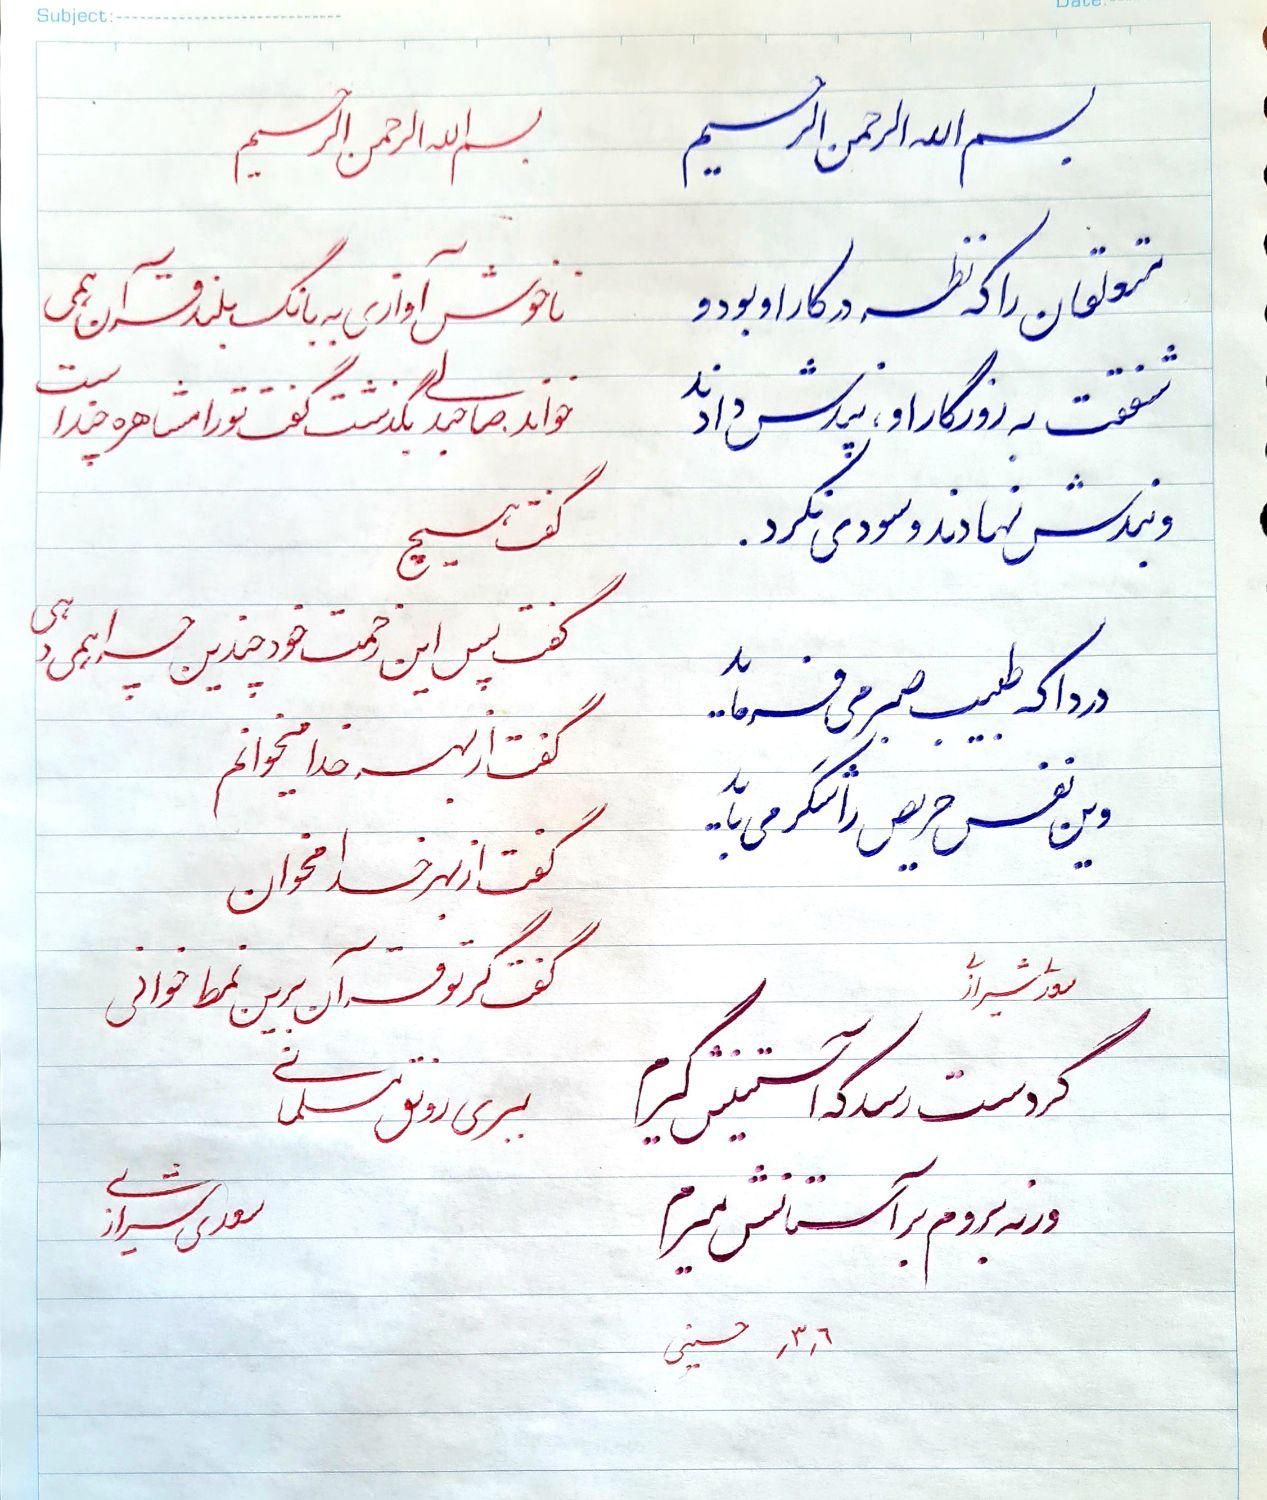 Subject:
Date:
بسم الله الرحمن الرحیم
متعلقان را که نظر در کار او بود و
شفقت به روزگار او، پندش دادند
و بندش نهادند و سودی نکرد.
دردا که طبیب صبر می فرماید
وین نفس حریص را شکر می باید
سعدی شیرازی
گر دست رسد که آستینش گیرم
ورنه بروم بر آستانش میرم
۳٫۶ حسینی
بسم الله الرحمن الرحیم
ناخوش آوازی به بانگ بلند قرآن همی
خواند. صاحبدلی بگذشت گفت تو را مشاهره چند است
گفت هیچ
گفت پس این زحمت خود چندین چرا همی دهی
گفت از بهر خدا میخوانم
گفت از بهر خدا مخوان
گفت گر تو قرآن برین نمط خوانی
ببری رونق مسلمانی
سعدی شیرازی